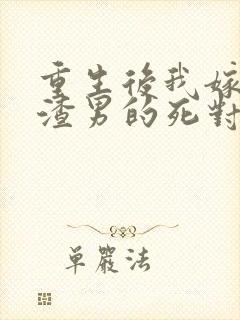 重生後我嫁
渣男的死對
单嚴法